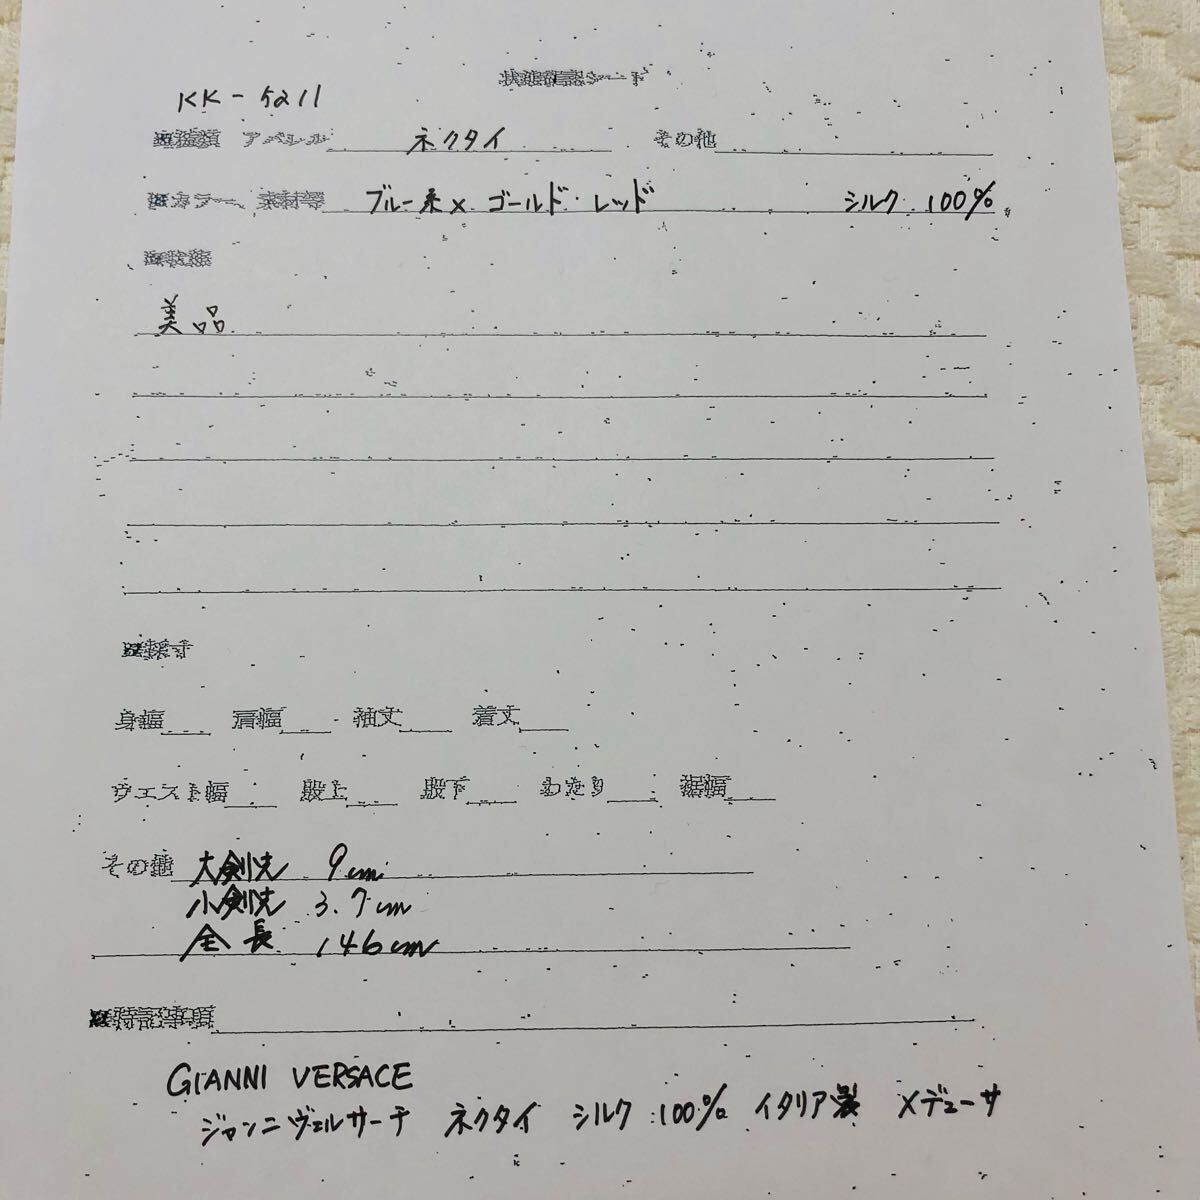 状態確認シート
KK-5211
種類 アパレル ネクタイ その他
カラー、素材等 ブルー系× ゴールド・レッド シルク 100%
状態
美品
採寸
身幅 肩幅 袖丈 着丈
ウエスト幅 股上 股下 わたり 裾幅
その他 大剣先 9cm
小剣先 3.7cm
全長 146cm
特記事項
GIANNI VERSACE
ジャンニヴェルサーチ ネクタイ シルク 100% イタリア製 メデューサ